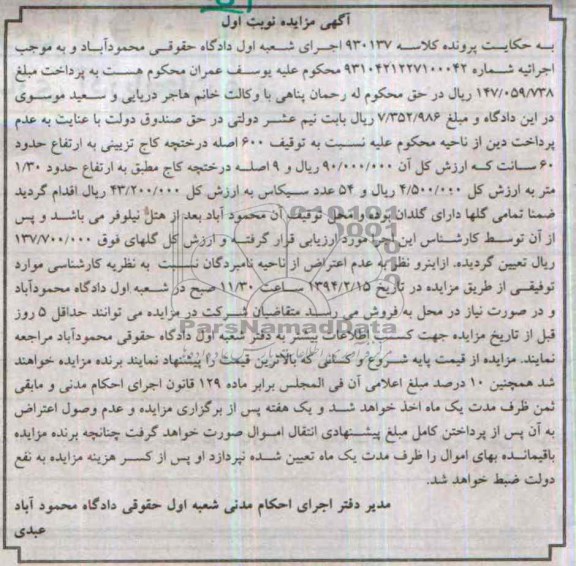 آگهی مزایده نوبت اول
به حکایت پرونده کلاسه ۹۳۰۱۳۷ اجرای شعبه اول دادگاه حقوقی محمودآباد و به موجب
اجرائیه شماره ۹۳۱۰۴۲۱۲۲۷۱۰۰۰۴۲ محکوم علیه یوسف عمران محکوم هست به پرداخت مبلغ
۱۴۷/۰۵۹/۷۳۸ ریال در حق محکوم له رحمان پناهی با وکالت خانم هاجر دریایی و سعید موسوی
در این دادگاه و مبلغ ۷/۳۵۲/۹۸۶ ریال بابت نیم عشر دولتی در حق صندوق دولت با عنایت به عدم
پرداخت دین از ناحیه محکوم علیه نسبت به توقیف ۶۰۰ اصله درختچه کاج تزیینی به ارتفاع حدود
۶۰ سانت که ارزش کل آن ۹۰/۰۰۰/۰۰۰ ریال و ۹ اصله درختچه کاج مطبق به ارتفاع حدود ۱/۳۰
متر به ارزش کل ۴/۵۰۰/۰۰۰ ریال و ۵۴ عدد سیکاس به ارزش کل ۴۳/۲۰۰/۰۰۰ ریال اقدام گردید
ضمنا تمامی گلها دارای گلدان بوده و محل توقیف آن محمود آباد بعد از هتل نیلوفر می باشد و پس
از آن توسط کارشناس این اجرا مورد ارزیابی قرار گرفته و ارزش کل گلهای فوق ۱۳۷/۷۰۰/۰۰۰
ریال تعیین گردیده. ازاینرو نظر به عدم اعتراض از ناحیه نامبردگان نسبت به نظریه کارشناسی موارد
توقیفی از طریق مزایده در تاریخ ۱۳۹۴/۲/۱۵ ساعت ۱۱/۳۰ صبح در شعبه اول دادگاه محمودآباد
و در صورت نیاز در محل به فروش می رسد متقاضیان شرکت در مزایده می توانند حداقل ۵ روز
قبل از تاریخ مزایده جهت کسب اطلاعات بیشتر به دفتر شعبه اول دادگاه حقوقی محمودآباد مراجعه
نمایند. مزایده از قیمت پایه شروع و کسانی که بالاترین قیمت را پیشنهاد نمایند برنده مزایده خواهند
شد همچنین ۱۰ درصد مبلغ اعلامی آن فی المجلس برابر ماده ۱۲۹ قانون اجرای احکام مدنی و مابقی
ثمن ظرف مدت یک ماه اخذ خواهد شد و یک هفته پس از برگزاری مزایده و عدم وصول اعتراض
به آن پس از پرداختن کامل مبلغ پیشنهادی انتقال اموال صورت خواهد گرفت چنانچه برنده مزایده
باقیمانده بهای اموال را ظرف مدت یک ماه تعیین شده نپردازد او پس از کسر هزینه مزایده به نفع
دولت ضبط خواهد شد.
مدیر دفتر اجرای احکام مدنی شعبه اول حقوقی دادگاه محمود آباد
عبدی
ParsNamadData